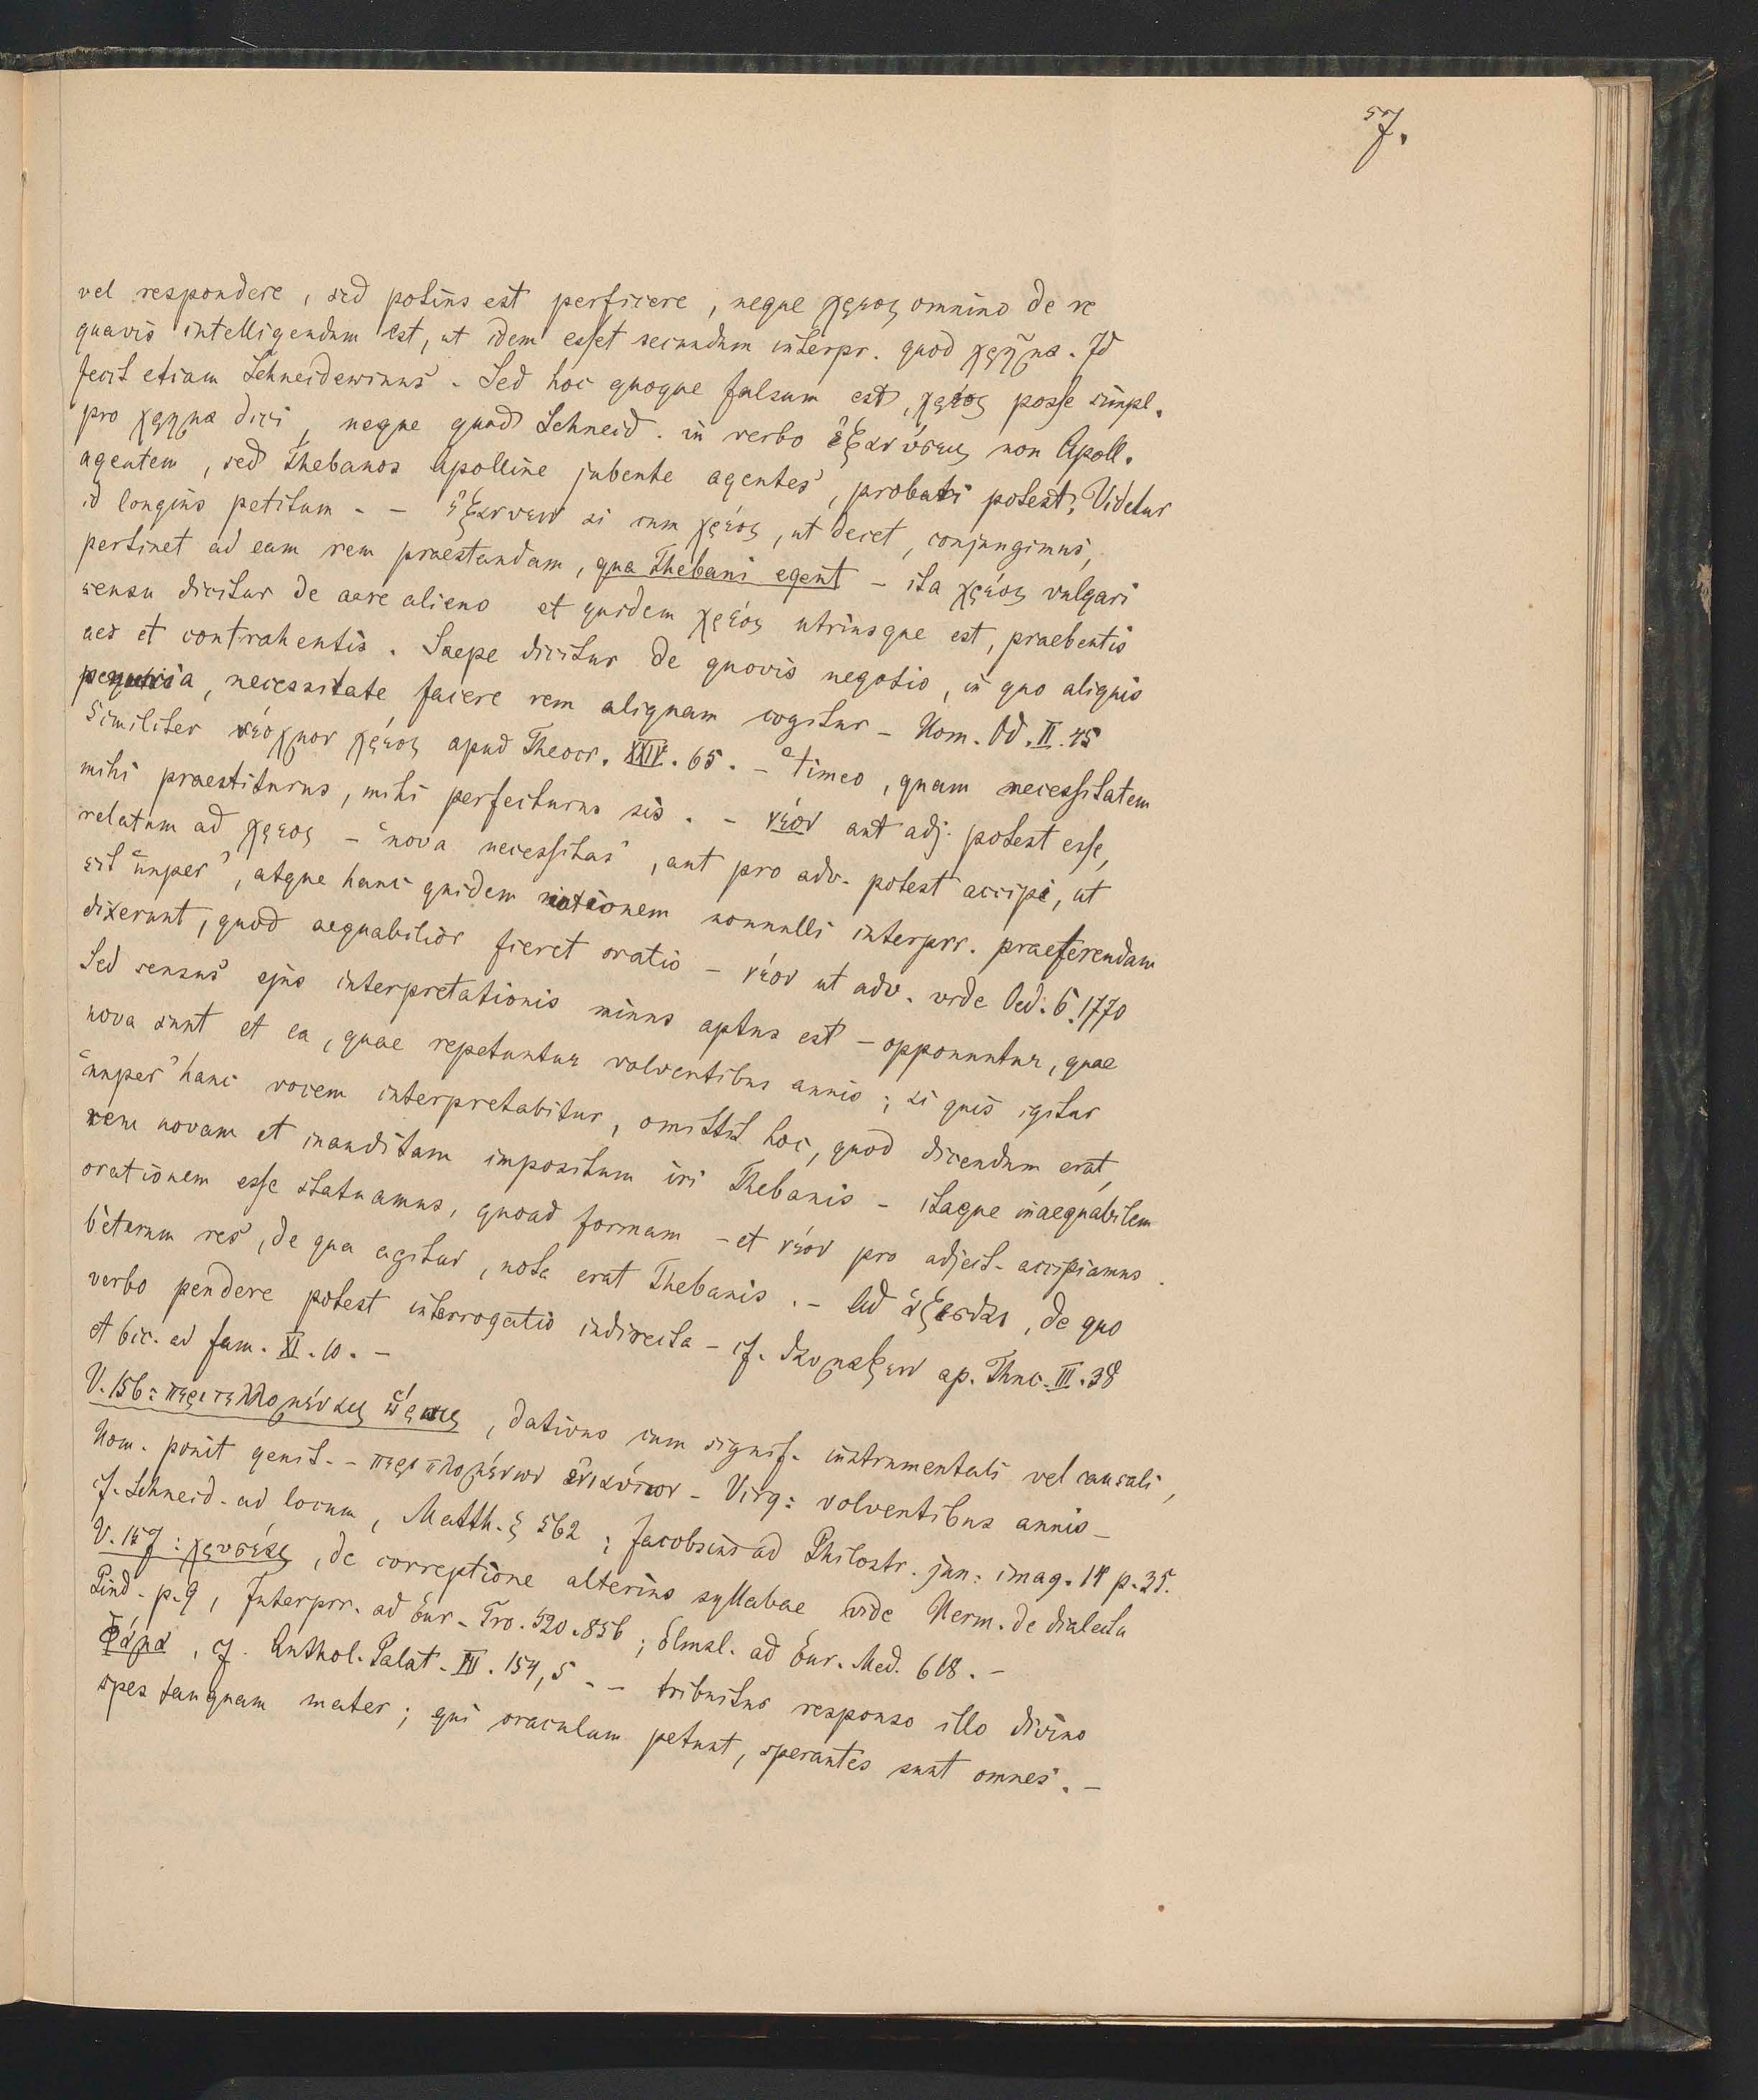 57.
vel respondere, sed potius est perficere, neque χρεος omnino de re
quavis intelligendum est, ut idem esset secundum interpr. quod χρῆμα. Id
fecit etiam Schneidewinus. Sed hoc quoque falsum est, χρέος posse simpl.
pro χρημα dici, neque quod Schneid. in verbo ἐξανύσεις non Apoll.
agentem, sed Thebanos Apolline jubente agentes, probari potest; Videtur
id longius petitum. – ἐξανυειν si cum χρέος, ut decet, conjungimus,
pertinet ad eam rem praestandam, qua Thebani egent – ita χρέος vulgari
sensu dicitur de aere alieno et quidem χρέος utriusque est, praebentis
aes et contrahentis. Saepe dicitur de quovis negotio, in quo aliquis
penuria, necessitate facere rem aliquam cogitur – Hom. Od. II. 45
Similiter νεόχμον χρέος apud Theocr. XXIV. 65. – "Timeo, quam necessitatem
mihi praestiturus, mihi perfecturus sis. – νέον aut adj. potest esse,
relatum ad χρεος – "nova necessitas", aut pro adv. potest accipi, ut
sit "nuper", atque hanc quidem notionem nonnulli interprr. praeferendam
dixerunt, quod aequabilior fieret oratio – νέον ut adv. vide Oed. C. 1770
Sed sensus ejus interpretationis minus aptus est – opponuntur, quae
nova sunt et ea, quae repetuntur volventibus annis; si quis igitur
"nuper" hanc vocem interpretabitur, omittit hoc, quod dicendum erat,
rem novam et inauditam impositum iri Thebanis – itaque inaequabilem
orationem esse statuamus, quoad formam – et νέον pro adject. accipiamus.
Ceterum res, de qua agitur, nota erat Thebanis. – Ad ἁζεσθαι, de quo
verbo pendere potest interrogatio indirecta – cf. θαυμαζειν ap. Thuc. III. 38
et Cic. ad fam. XI. 10. –
V. 156: περιτελλομέναις ὥραις, dativus cum signif. instrumentali vel causali,
Hom. ponit genit. – περιπλομένων ἐνιαύτων – Virg: volventibus annis –
cf. Schneid. ad locum, Matth. § 562; Jacobsius ad Philostr. jun: imag. 14 p. 35.
V. 157: χρυσέας, de correptione alterius syllabae vide Herm. de dialectu
Pind. p. 9, Interprr. ad Eur. Tro. 520. 856; Elmsl. ad Eur. Med. 618. –
Φάμα, cf. Anthol. Palat. III. 154, 5. – tribuitur responso illo divino
spes tanquam mater; qui oraculum petunt, sperantes sunt omnes. –